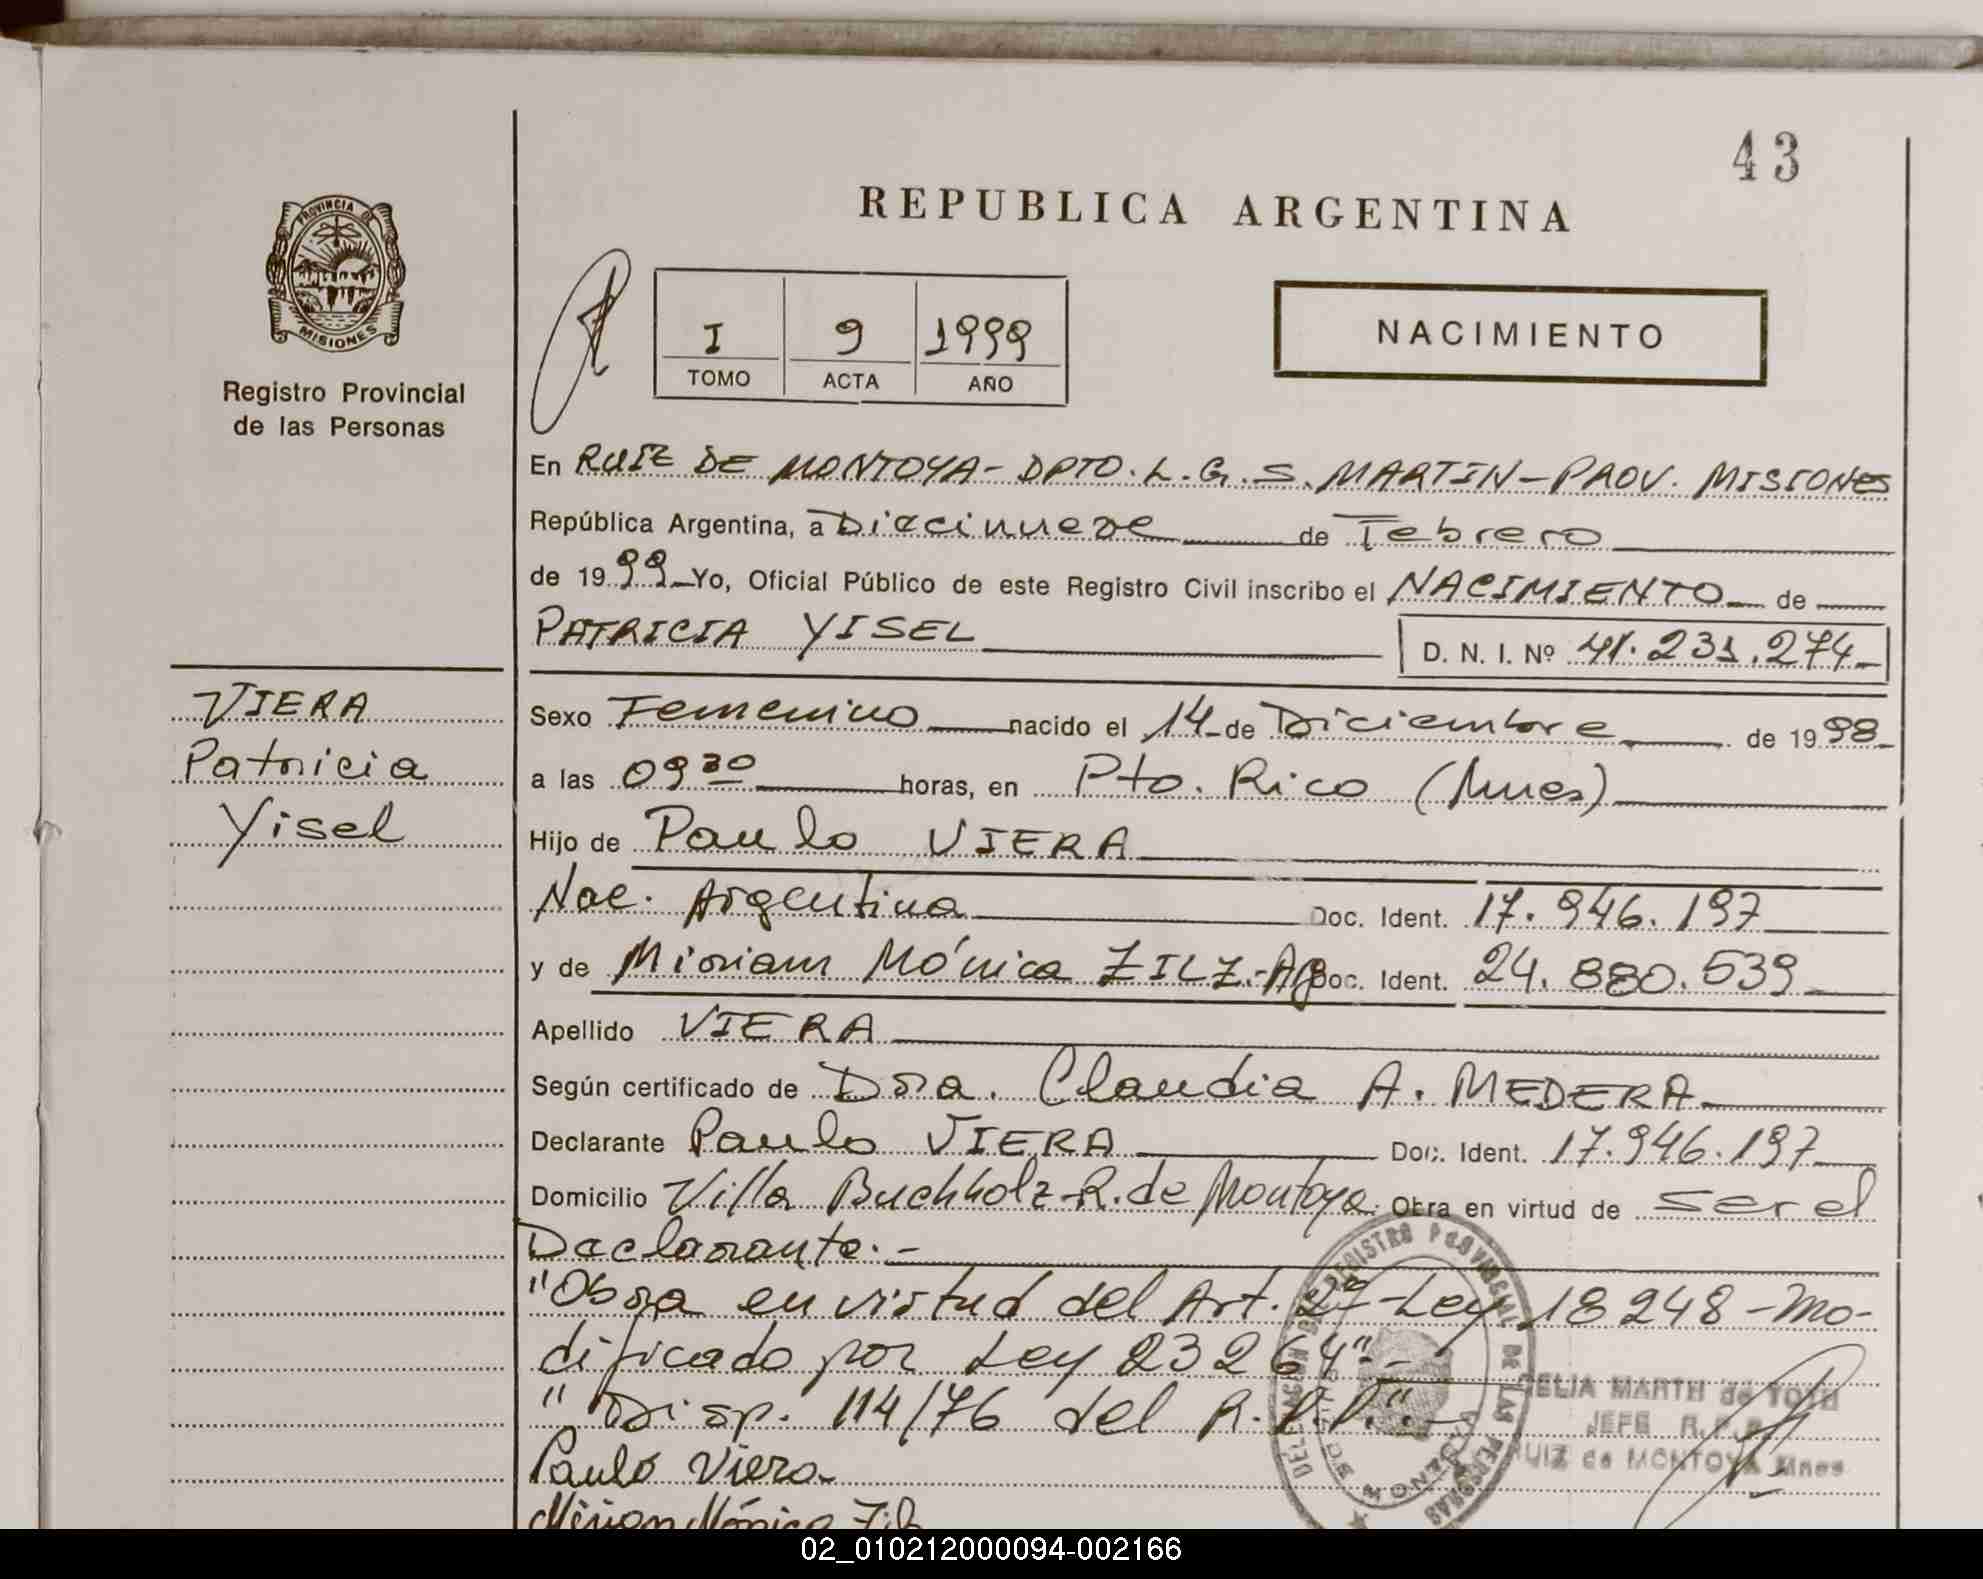 43
REPUBLICA ARGENTINA
PROVINCIA DE
MISIONES
Registro Provincial
de las Personas
I 9 1999
TOMO ACTA AÑO
NACIMIENTO
En RUIZ DE MONTOYA- DPTO. L.G.S. MARTIN-PROV. MISIONES
República Argentina, a Diecinueve de Febrero
de 1999 Yo, Oficial Público de este Registro Civil inscribo el NACIMIENTO de
PATRICIA YISEL D. N. I. Nº 41.231.274
VIERA
Patricia
Yisel
Sexo Femenino nacido el 14 de Diciembre de 1998
a las 09 30 horas, en Pto. Rico (Mnes)
Hijo de Paulo VIERA
Nac. Argentina Doc. Ident. 17.946.197
y de Miriam Mónica ZILZ.-Ag Doc. Ident. 24.880.539
Apellido VIERA
Según certificado de Dra. Claudia A. MEDERA
Declarante Paulo VIERA Doc. Ident. 17.946.197
Domicilio Villa Buchholz-R. de Montoya. Obra en virtud de ser el
Declarante.-
"Obra en virtud del Art. 27-Ley 18248-Mo-
dificado por Ley 23264".-
"Disp. 114/76 del R.P.P.".-
Paulo Viera
Mirian Mónica Zilz
DELEGACION DE REGISTRO PROVINCIAL DE LAS PERSONAS
CELIA MARTH de TOTH
JEFE R.P.P.
RUIZ de MONTOYA Mnes
02_010212000094-002166